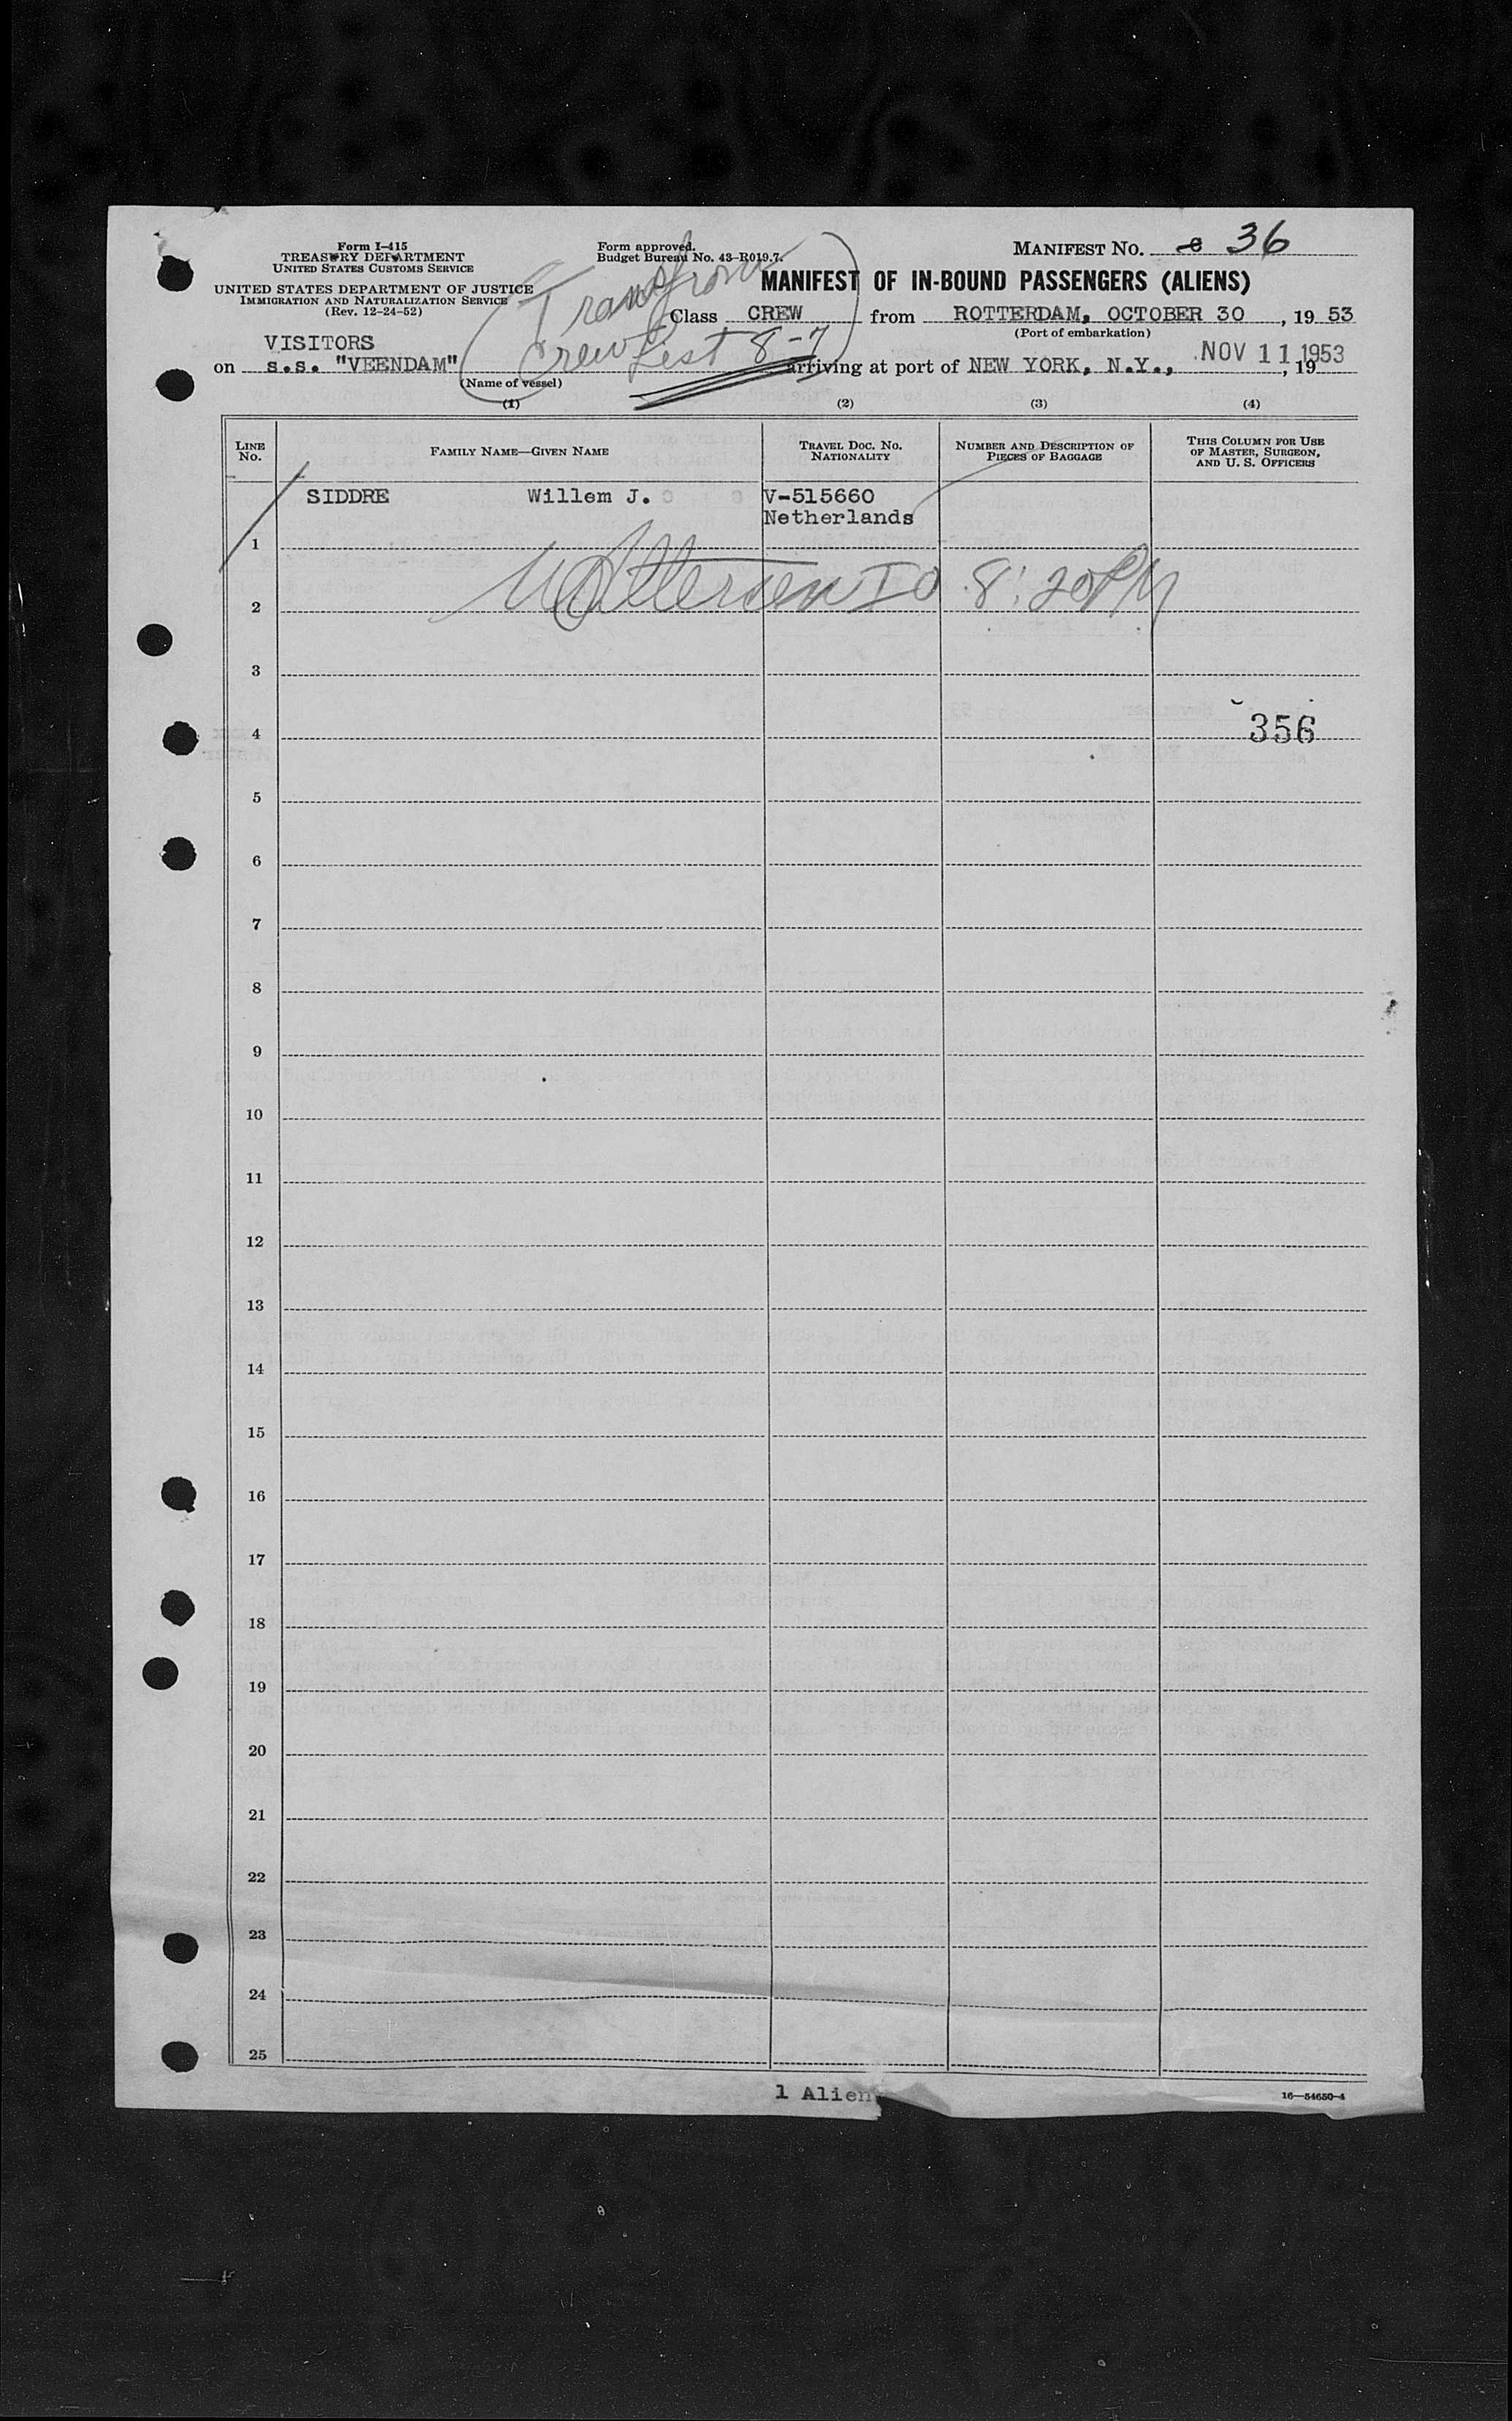 Form I-415
TREASURY DEPARTMENT
UNITED STATES CUSTOMS SERVICE
UNITED STATES DEPARTMENT OF JUSTICE
IMMIGRATION AND NATURALIZATION SERVICE
(Rev. 12-24-52)
Form approved.
Budget Bureau No. 43-R019.7.
MANIFEST NO. 36
MANIFEST OF IN-BOUND PASSENGERS (ALIENS)
(Trans from
Crew List 8-7)
Class CREW from ROTTERDAM, OCTOBER 30, 1953
(Port of embarkation)
VISITORS
on s.s. "VEENDAM" arriving at port of NEW YORK, N.Y., NOV 11 1953, 19
(Name of vessel)
(1) (2) (3) (4)
LINE NO. FAMILY NAME—GIVEN NAME TRAVEL DOC. NO. NATIONALITY NUMBER AND DESCRIPTION OF PIECES OF BAGGAGE THIS COLUMN FOR USE OF MASTER, SURGEON, AND U. S. OFFICERS
SIDDRE Willem J. V-515660
Netherlands
1
2 IO 8:20PM
3
4 356
5
6
7
8
9
10
11
12
13
14
15
16
17
18
19
20
21
22
23
24
25
1 Alien
16—54650-4